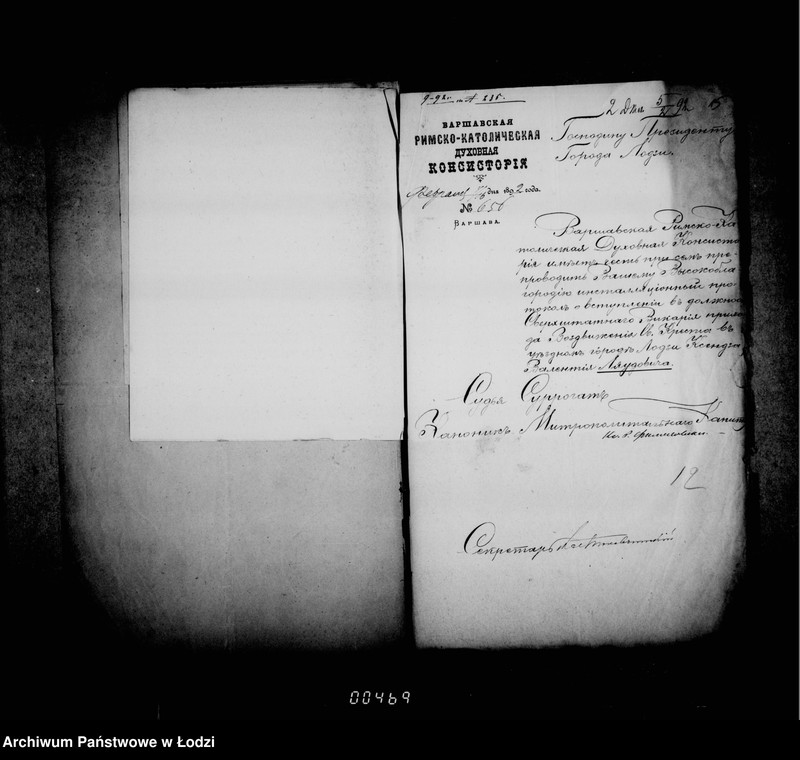 2 Дѣла 5/II 92
ВАРШАВСКАЯ
РИМСКО-КАТОЛИЧЕСКАЯ
ДУХОВНАЯ
КОНСИСТОРІЯ
дня 1892 года.
№ 656
ВАРШАВА.
Господину Президенту
Города Лодзи.
Варшавская Римско-Ка
толическая Духовная Консисто
рія имѣетъ честь при семъ пре
проводить Вашему Высокобла
городію инсталляціонный про
токолъ о вступленіи въ должнос
Сверхштатнаго Викарія прихо
да Воздвиженія Св. Креста въ
уѣздномъ городѣ Лодзи Ксендза
Валентія
Судья Суррогатъ
Каноникъ Митрополитальнаго Капит
12
Секретарь
00469
Archiwum Państwowe w Łodzi